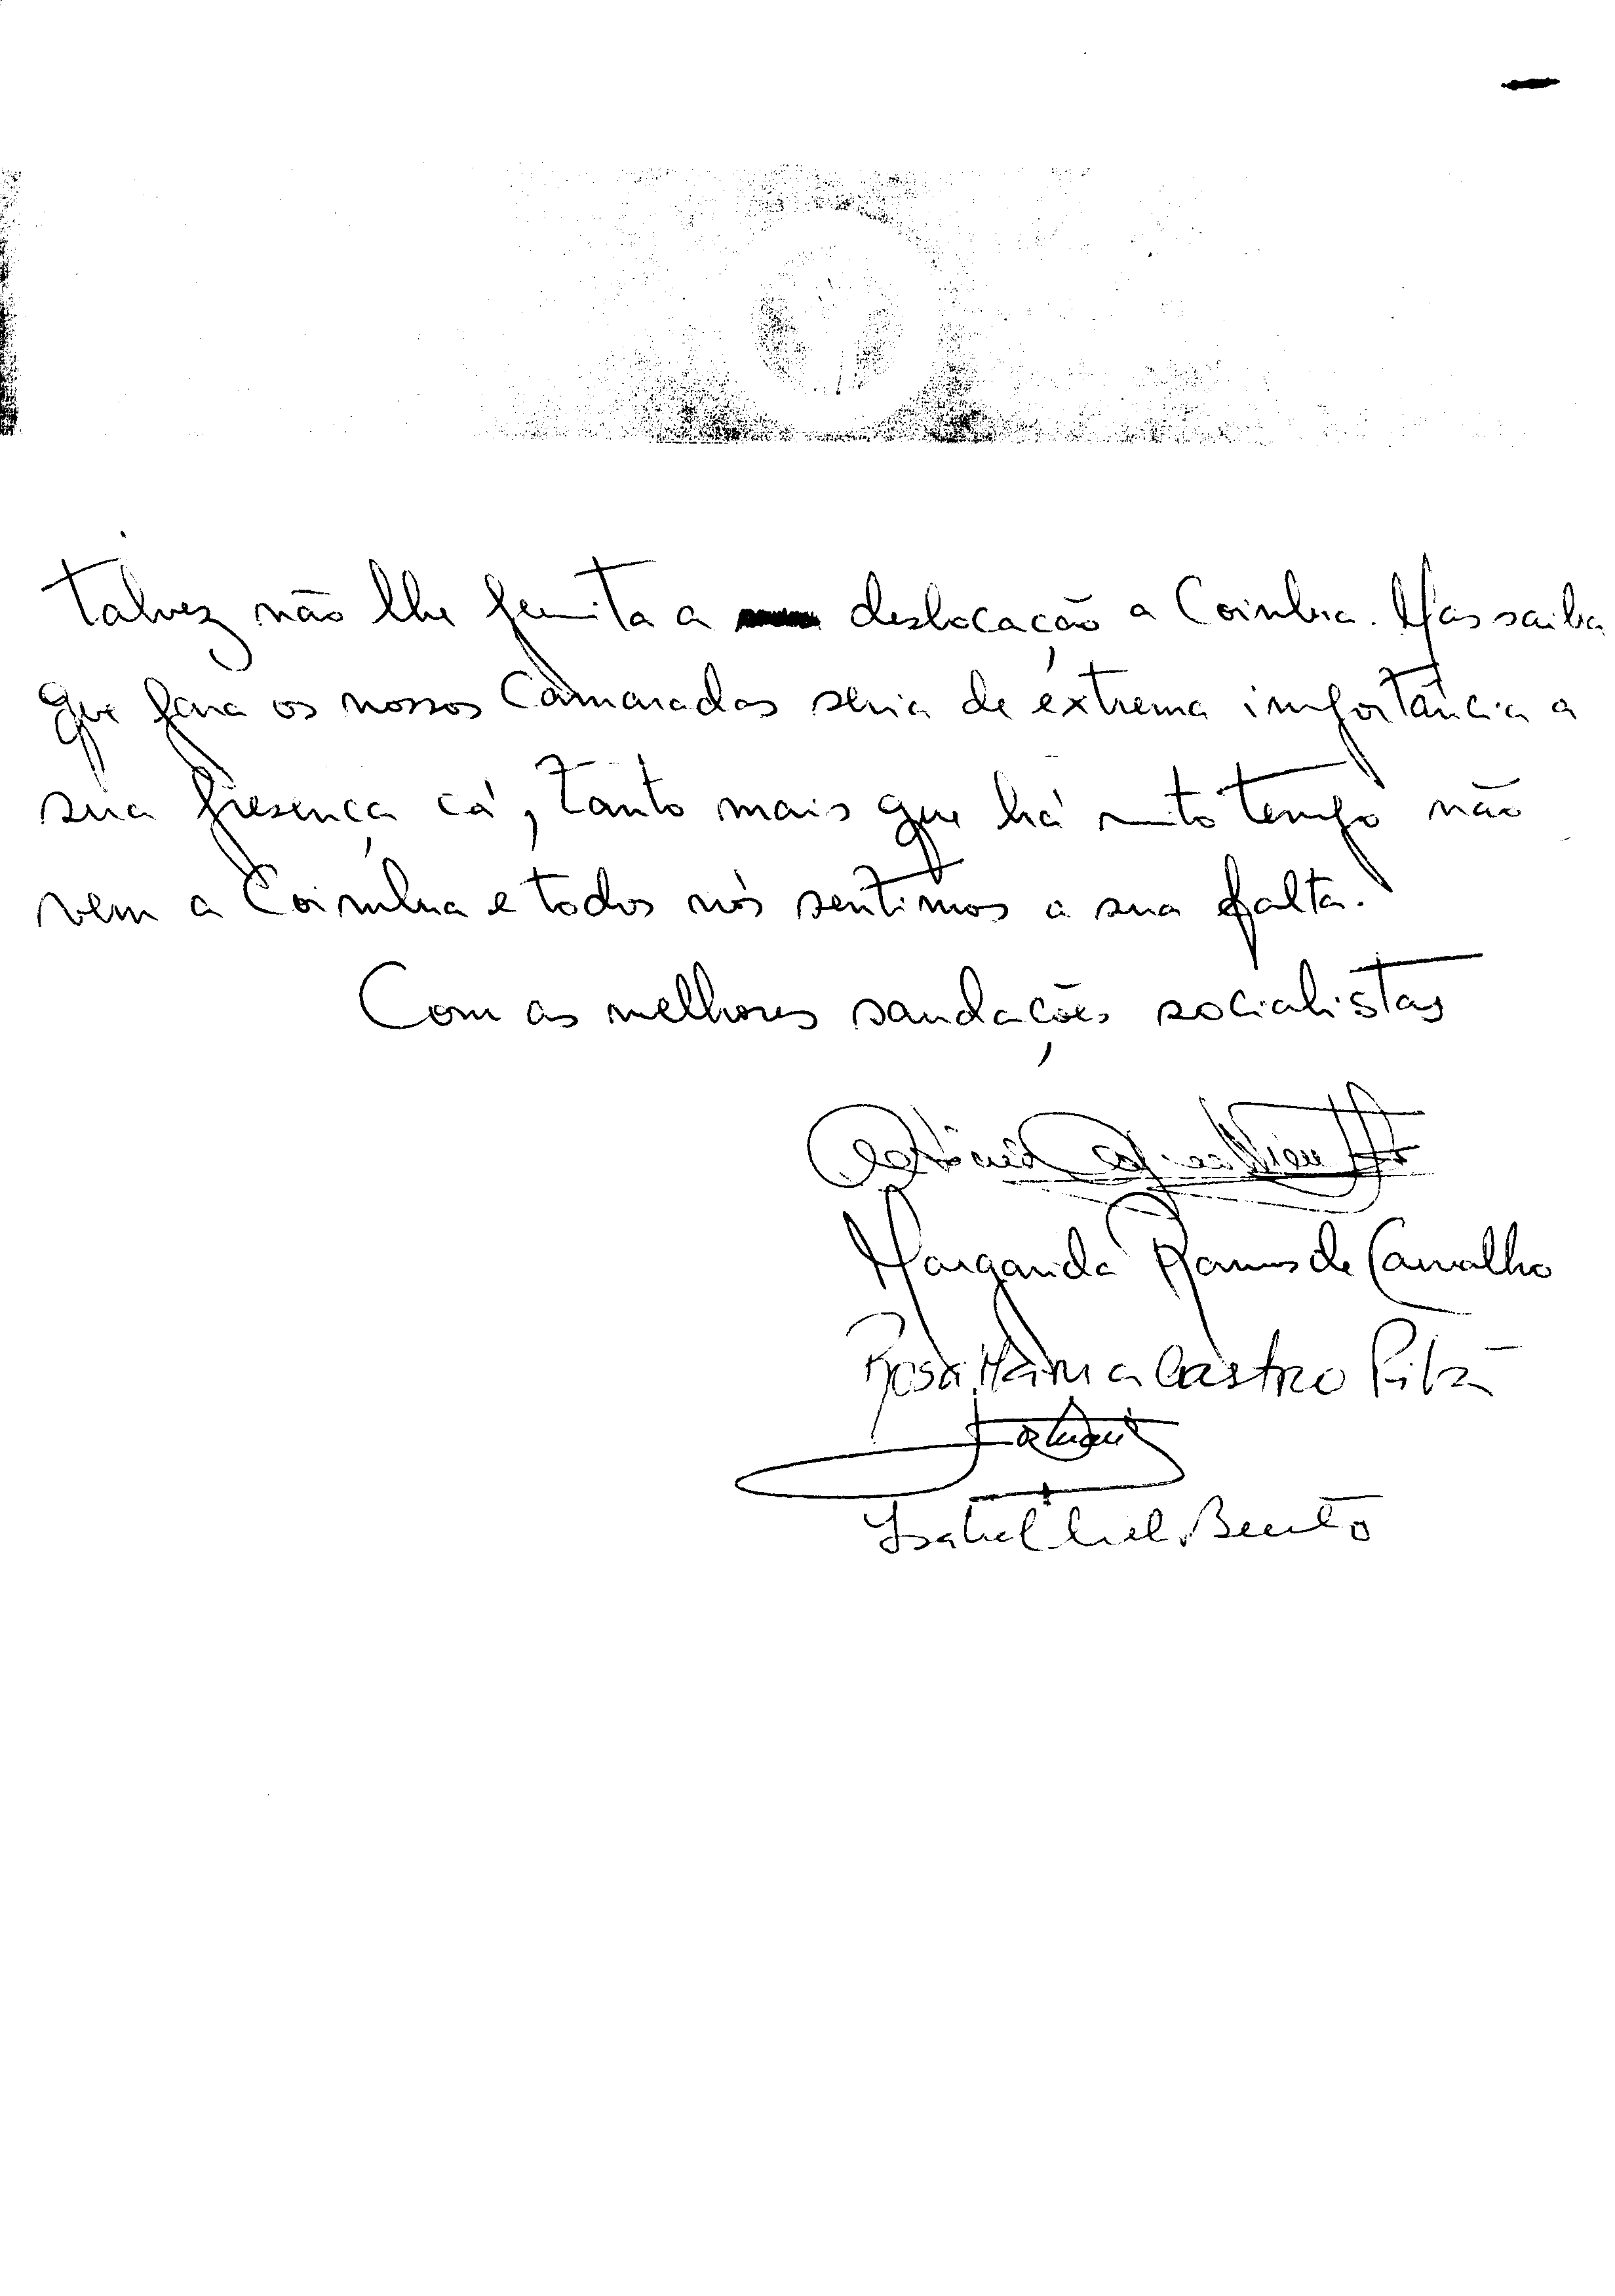 talvez não lhe permita a deslocação a Coimbra. Mas saiba
que para os nossos Camaradas seria de extrema importância a
sua presença cá, tanto mais que há muito tempo não
vem a Coimbra e todos nós sentimos a sua falta.
Com as melhores saudações socialistas
Margarida Ramos de Carvalho
Rosa Maria Castro Pita
Isabel Bento